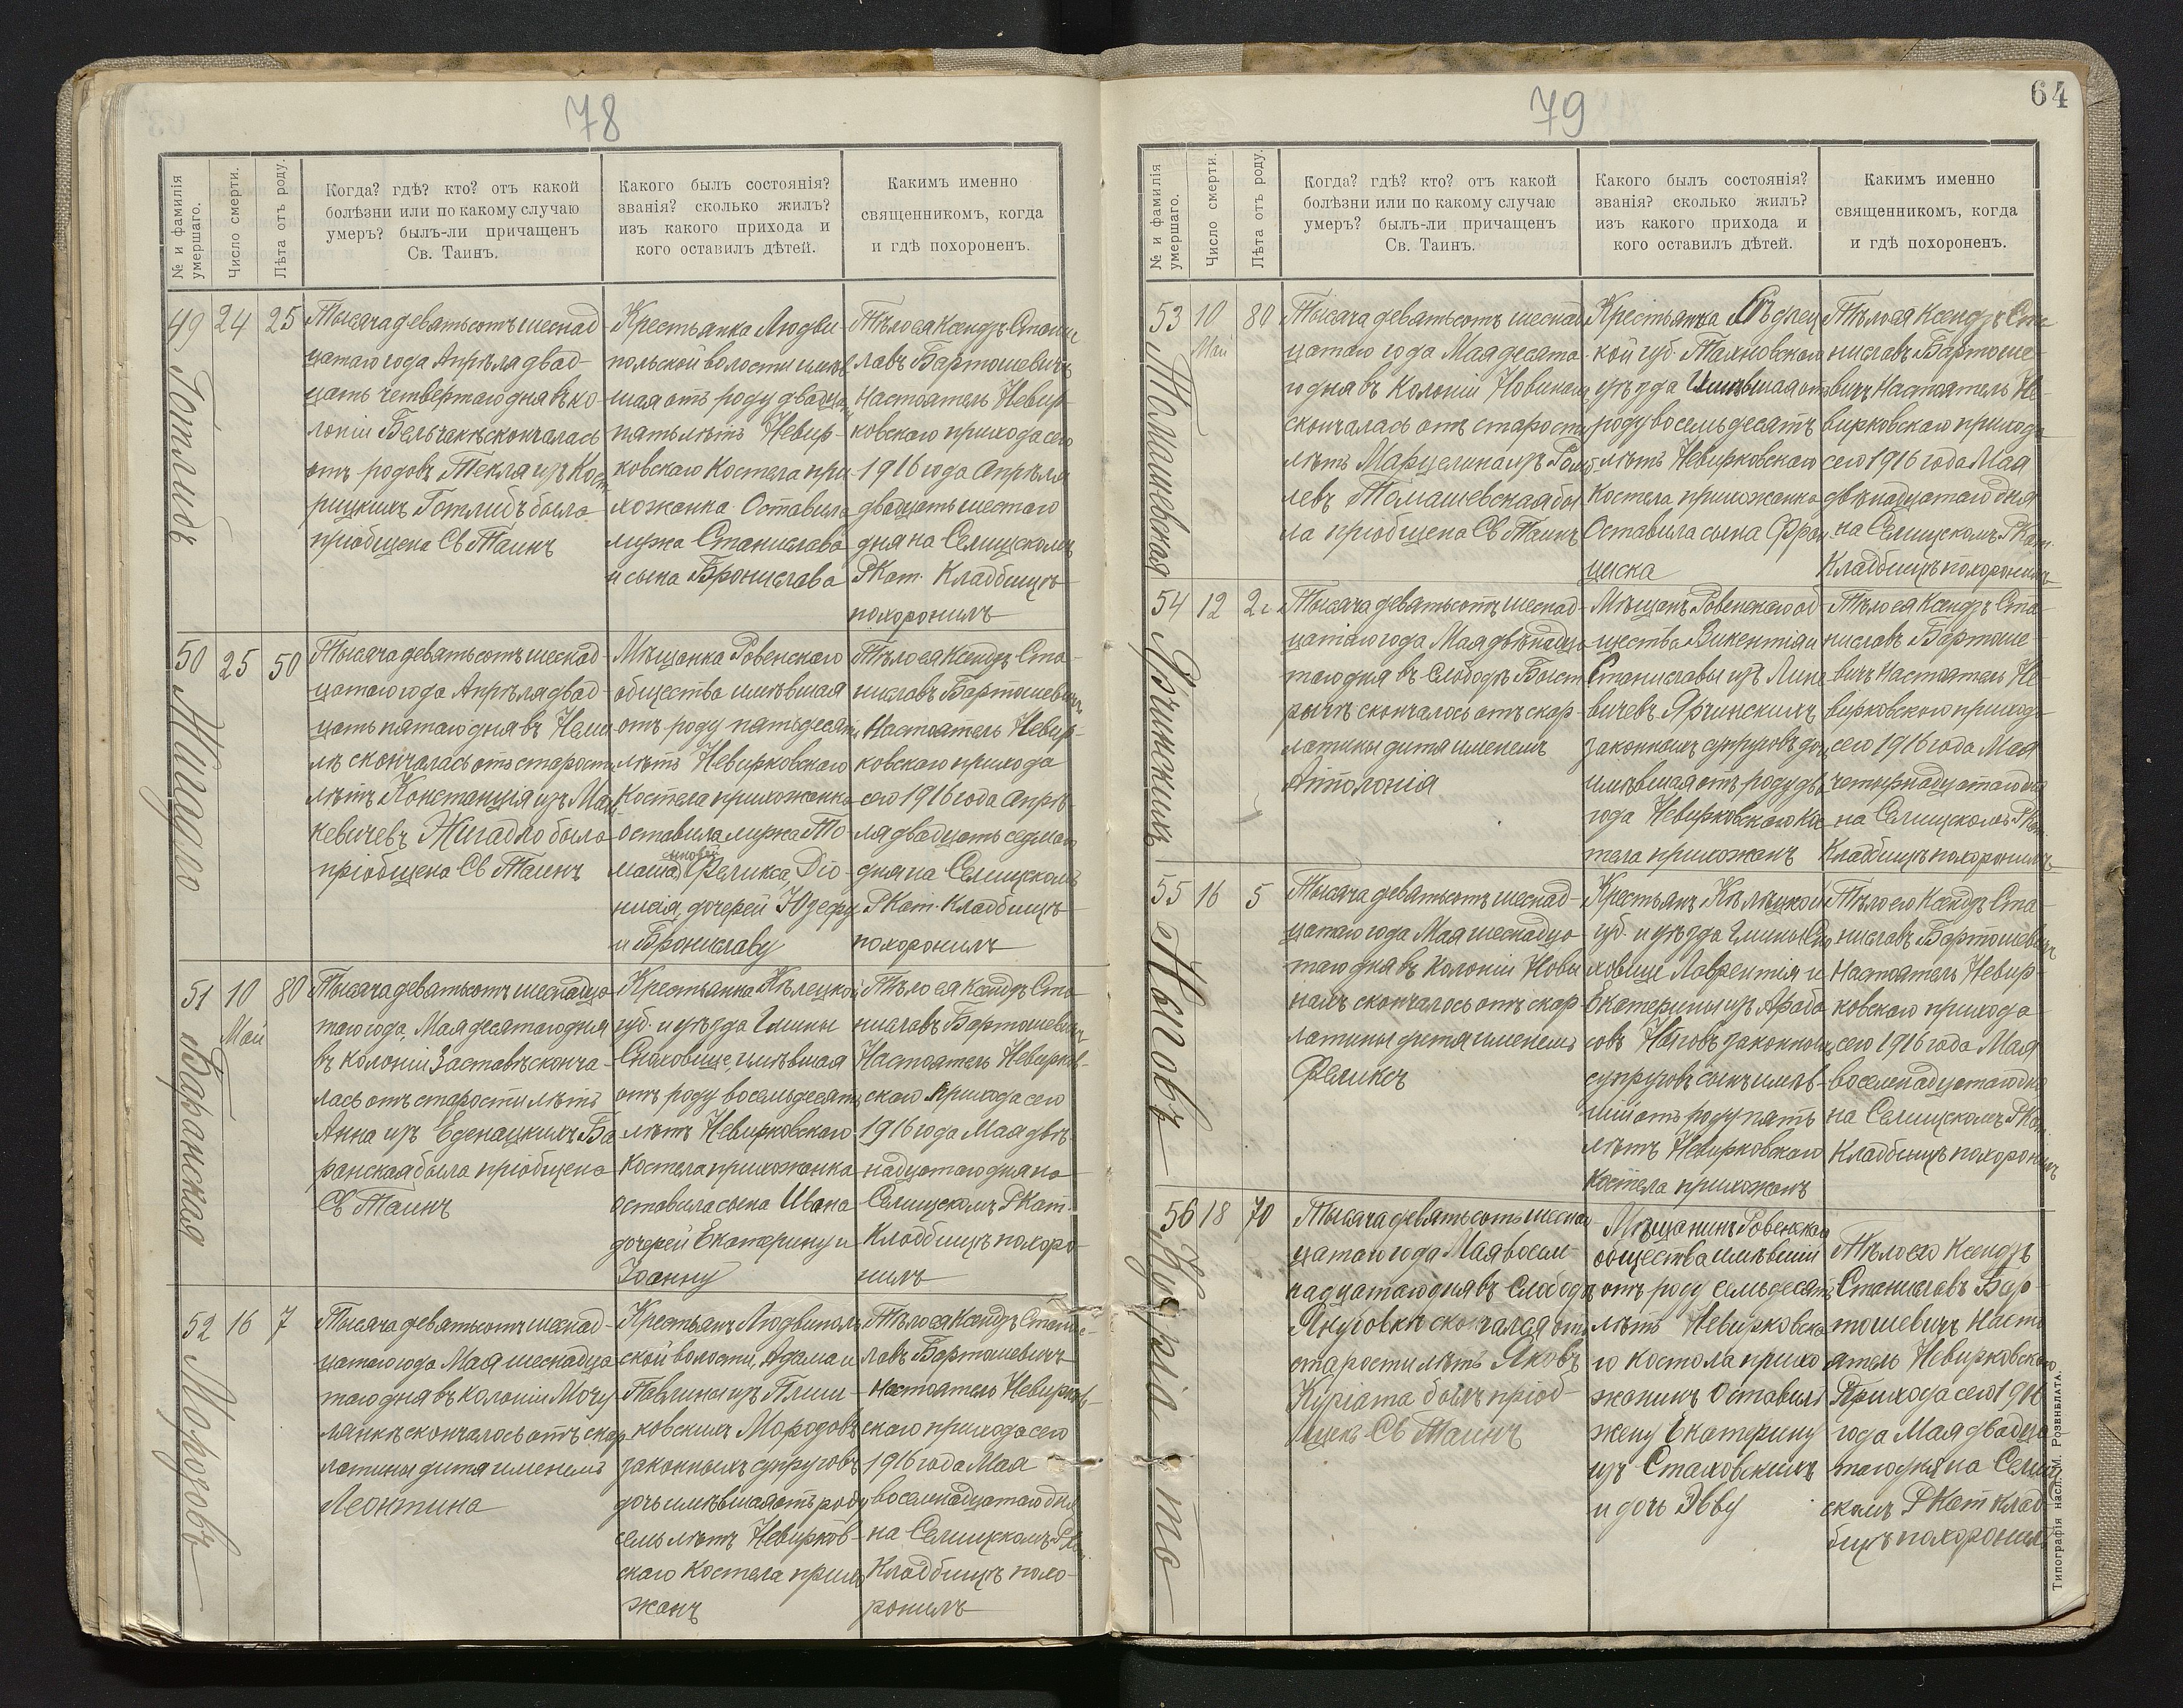 78
№ и фамилія
умершаго.
Число смерти.
Лѣта отъ роду.
Когда? гдѣ? кто? отъ какой
болѣзни или по какому случаю
умеръ? былъ-ли причащенъ
Св. Таинъ.
Какого былъ состоянія?
званія? сколько жилъ?
изъ какого прихода и
кого оставилъ дѣтей.
Какимъ именно
священникомъ, когда
и гдѣ похороненъ.
49
Готлибъ
24
25
Тысяча девятьсотъ шеснад
цатаго года Апрѣля двад-
цать четвертаго дня въ ко-
лоніи Бельчакѣ скончалась
отъ родовъ Текля изъ
рицкихъ Готлибъ была
пріобщена Св Таинъ
Крестьянка Людви-
польской волости имѣв
шая отъ роду двадца
пять лѣтъ Невир-
ковскаго Костела при-
хожанка Оставила
мужа Станислава
и сына Бронислава
Тѣло ея Ксендзъ Станис
лавъ Бартошевичъ
Настоятель Невир-
ковскаго прихода сего
1916 года Апрѣля
двадцать шестаго
дня на Селищскомъ
РКат. Кладбищѣ
похоронилъ
50
Жигадло
25
50
Тысяча девятьсотъ шеснад-
цатаго года Апрѣля двад-
цать пятаго дня въ
лѣ скончалась отъ старости
лѣтъ Констанція изъ
кевичевъ Жигадло была
пріобщена Св Таинъ
Мѣщанка Ровенскаго
общества имѣвшая
отъ роду пятьдесятъ
лѣтъ Невирковскаго
Костела прихожанка
оставила мужа То-
маша, сыновей Феликса, Діо-
нисія, дочерей Юзефу
и Брониславу
Тѣло ея Ксендзъ Ста-
ниславъ Бартошевичъ
Настоятель Невир-
ковскаго прихода
сего 1916 года Апрѣ-
ля двадцать седмаго
дня на Селищскомъ
РКат. Кладбищѣ
похоронилъ
51
Баранская
10
Май
80
Тысяча девятьсотъ шеснадца-
таго года, Мая десятаго дня
въ колоніи Заставѣ сконча-
лась отъ старости лѣтъ
Анна изъ Еденацкихъ Ба
ранская была пріобщена
Св Таинъ
Крестьянка Кѣлецкой
губ. и уѣзда Гмины
Снаховище, имѣвшая
отъ роду восемьдесятъ
лѣтъ Невирковскаго
Костела прихожанка
оставила сына Ивана
дочерей Екатерину и
Іоанну
Тѣло ея Ксендзъ Ста-
ниславъ Бартошевичъ
Настоятель Невирков-
скаго прихода сего
1916 года Мая двѣ-
надцатаго дня на
Селищскомъ РКат.
Кладбищѣ похоро-
нилъ
52
Морозовъ
16
7
Тысяча девятьсотъ шеснад-
цатаго года Мая шеснадца
таго дня въ колоніи Мочу
лянкѣ скончалось отъ скар
латины дитя именемъ
Леонтина
Крестьянъ Людвиполь
ской волости, Адама и
Павлины изъ Плиш-
ковскихъ Мородовъ
законныхъ супруговъ
дочь имѣвшая отъ роду
семь лѣтъ Невирков-
скаго Костела прихо
жанъ
Тѣло ея Ксендзъ Станис-
лавъ Бартошевичъ
Настоятель Невирков-
скаго прихода сего
1916 года Мая
восемнадцатаго дня
на Селищскомъ РКат
Кладбищѣ похо-
ронилъ
79
64
№ и фамилія
умершаго.
Число смерти.
Лѣта отъ роду.
Когда? гдѣ? кто? отъ какой
болѣзни или по какому случаю
умеръ? былъ-ли причащенъ
Св. Таинъ.
Какого былъ состоянія?
званія? сколько жилъ?
изъ какого прихода и
кого оставилъ дѣтей.
Какимъ именно
священникомъ, когда
и гдѣ похороненъ.
53
Томашевская
10
Май
80
Тысяча девятьсотъ шеснад
цатаго года Мая десята
го дня въ Колоніи Новинахъ
скончалась отъ старости
лѣтъ Марцелина изъ
левъ Томашевская бы
ла пріобщена Св Таинъ
Крестьянка Сѣдлец
кой губ.
уѣзда Имѣвшая отъ
роду восемьдесятъ
лѣтъ Невирковскаго
Костела прихожанка
Оставила сына Фран
циска
Тѣло ея Ксендзъ Ста
ниславъ Бартоше-
вичъ Настоятель Не-
вирковскаго прихода
сего 1916 года Мая
двѣнадцатаго дня
на Селищскомъ РКат.
Кладбищѣ похоронилъ
54
Ярчинскихъ
12
2
Тысяча девятьсотъ шеснад-
цатаго года Мая двѣнадца
таго дня въ Слободѣ Быст
рычѣ скончалось отъ скар-
латины дитя именемъ
Аполонія
Мѣщанъ Ровенскаго об
щества Викентія и
Станиславы изъ Лине
вичевъ Ярчинскихъ
законныхъ супруговъ дочь
имѣвшая отъ роду два
года Невирковскаго Кос
тела прихожанъ
Тѣло ея Ксендзъ Ста-
ниславъ Бартоше-
вичъ Настоятель Не-
вирковскаго прихода
сего 1916 года Мая
четырнадцатаго дня
на Селищскомъ РКат
Кладбищѣ похоронилъ
55
Ноговъ
16
5
Тысяча девятьсотъ шеснад-
цатаго года Мая шеснадца-
таго дня въ Колоніи Нови
нахъ скончалось отъ скар
латины дитя именемъ
Феликсъ
Крестьянъ Кѣлецкой
губ. и уѣзда Гмины Сна
ховище Лаврентія и
Екатерины изъ Араба
совъ Ноговъ законныхъ
супруговъ сынъ имѣв-
шій отъ роду пять
лѣтъ Невирковскаго
Костела прихожанъ
Тѣло его Ксендзъ Ста-
ниславъ Бартошевичъ
Настоятель Невир-
ковскаго прихода
сего 1916 года Мая
восемнадцатаго дня
на Селищскомъ РКат
Кладбищѣ похоронилъ
56
Куріята
18
70
Тысяча девятьсотъ шеснад
цатаго года Мая восем-
надцатаго дня въ Слободѣ
Янусовкѣ скончался отъ
старости лѣтъ Яковъ
Куріята былъ пріоб-
щенъ Св Таинъ
Мѣщанинъ Ровенскаго
общества имѣвшій
отъ роду семьдесятъ
лѣтъ Невирковска
го костола прихо
жанинъ Оставилъ
жену Екатерину
изъ Стаховскихъ
и дочь Эву
Тѣло его Ксендзъ
Станиславъ Бар-
тошевичъ Насто
ятель Невирковскаго
Прихода сего 1916
года Мая двадца
таго дня на Селищ
скомъ РКат клад
бищѣ похоронилъ
Типографія насл. М. Розенблата.